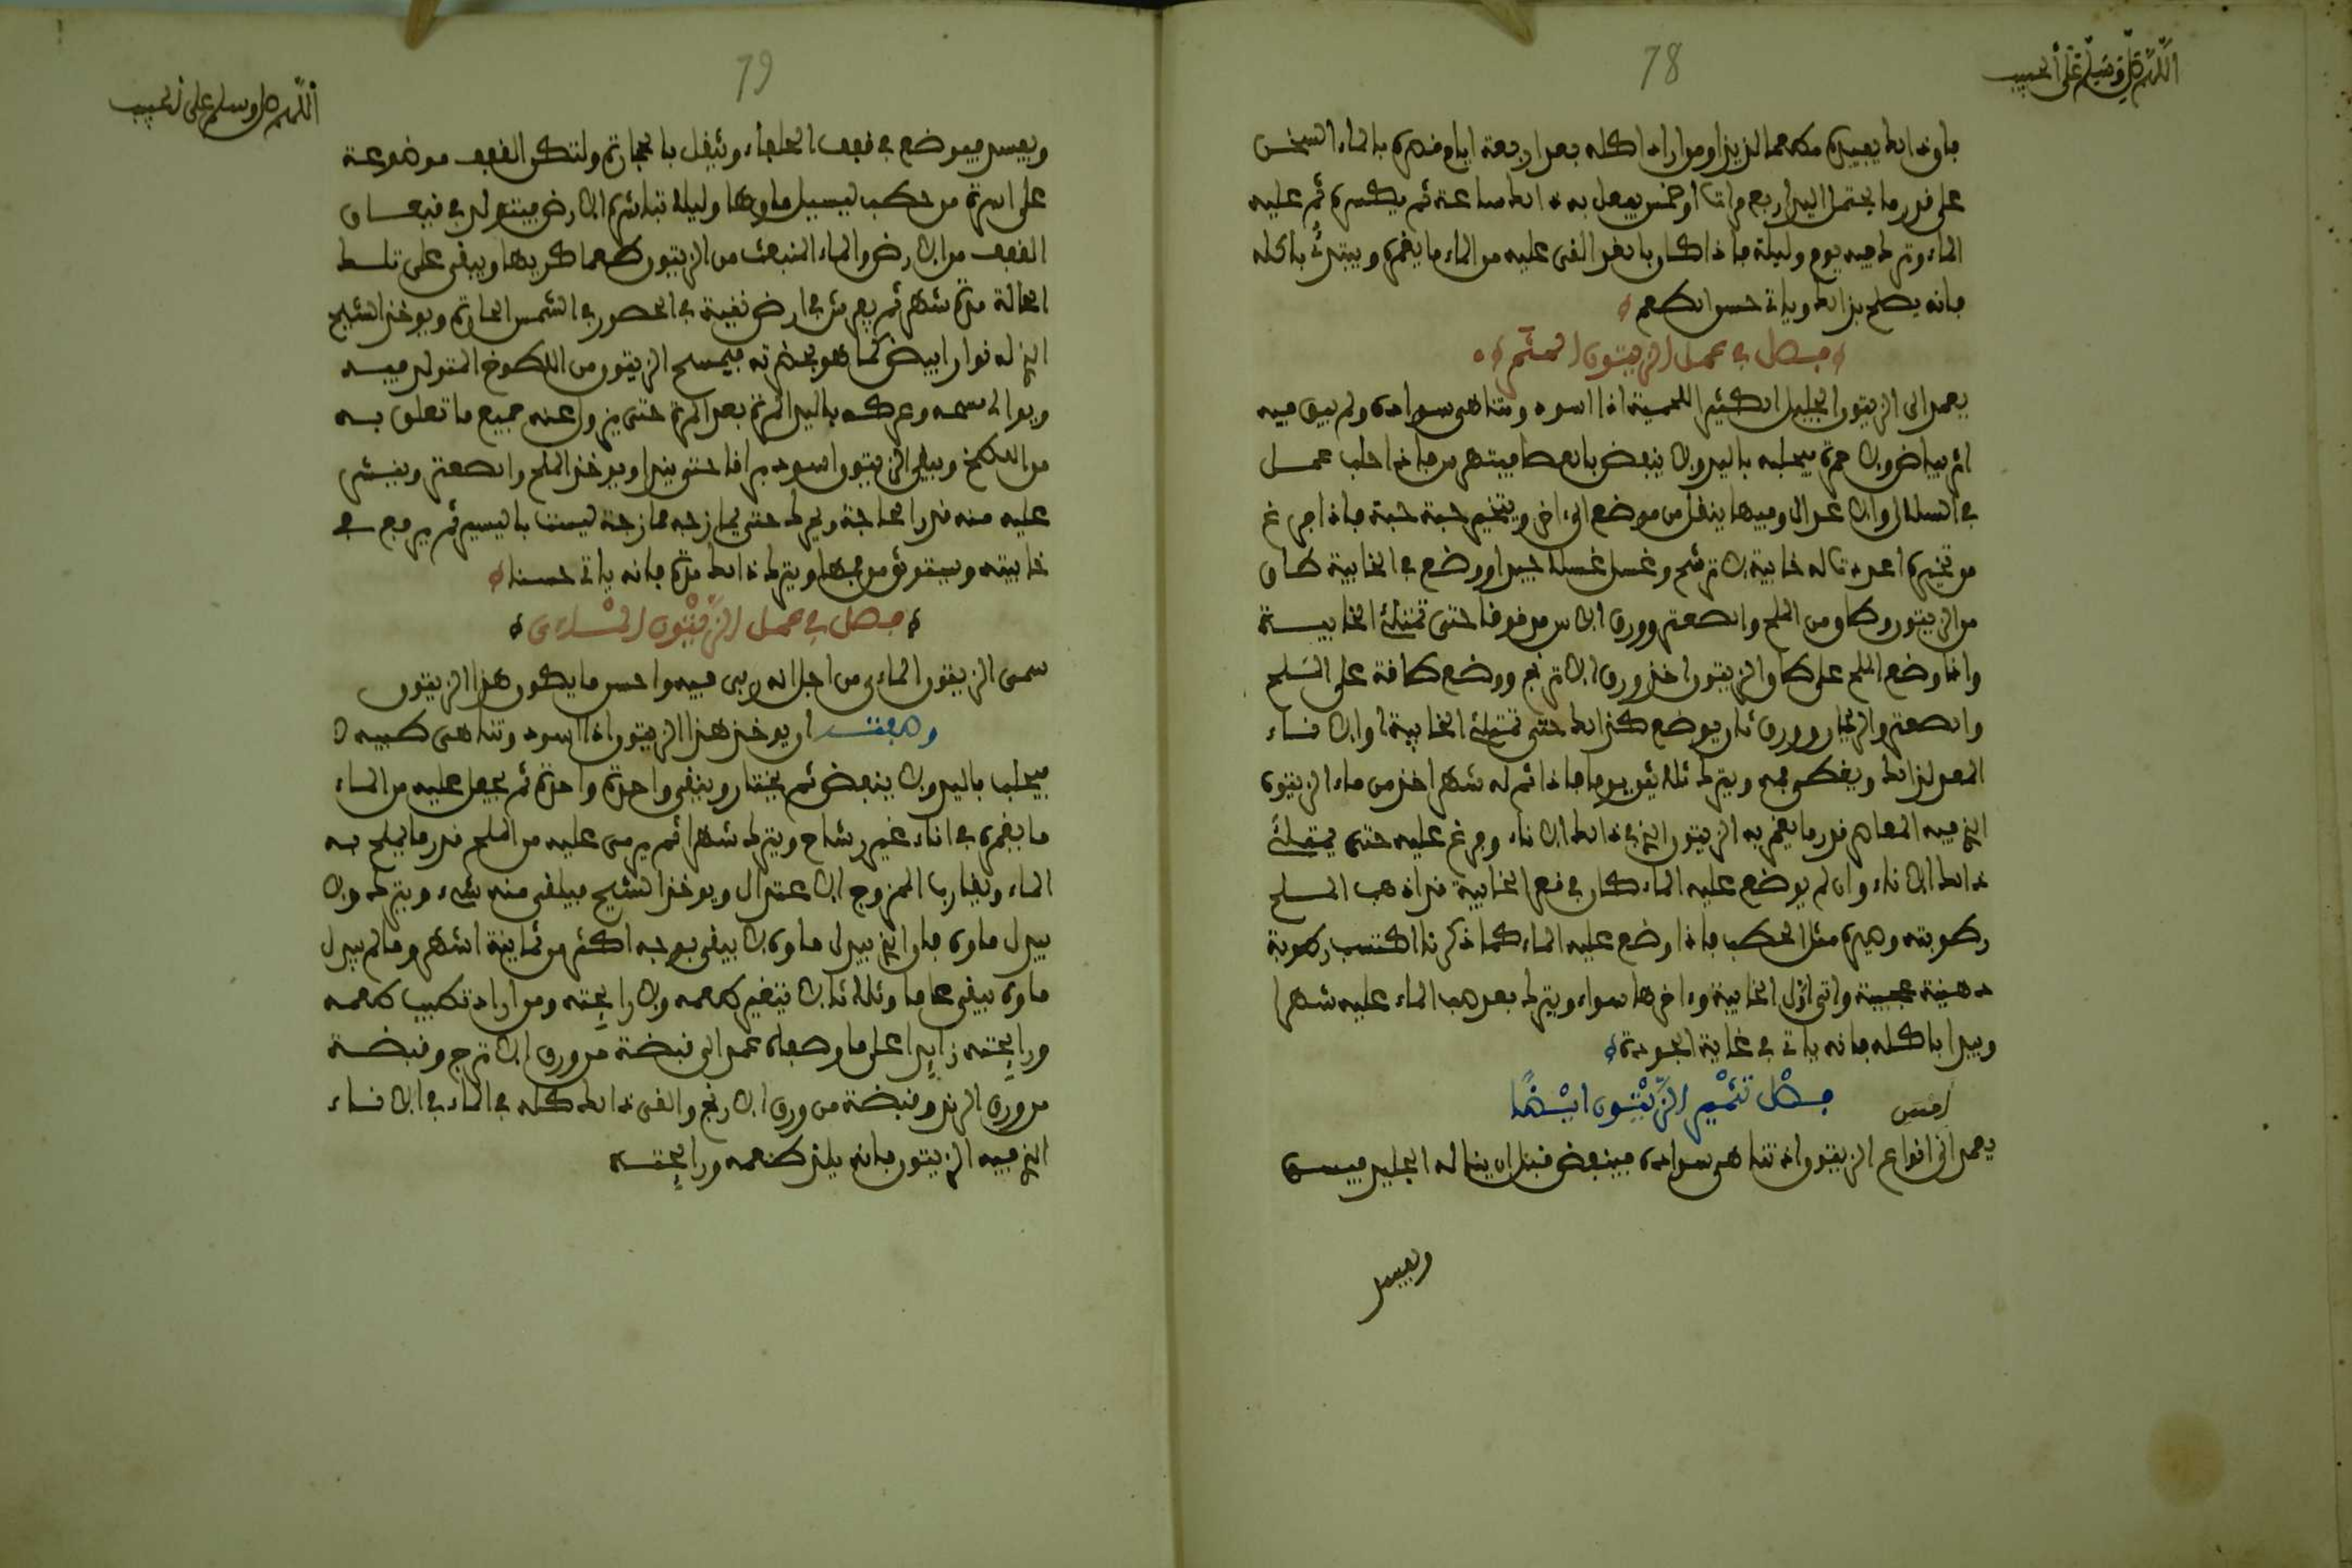 78
اللهم صل وسلم على الحبيب
فإن ذلك يفيده طعما لذيذا ومن أراد أكله بعد أربعة أيام فمره بالماء السخن
على قدر ما يحتمل اليد أربع مرات أو خمس يفعل به ذلك ساعة ثم يكسره ثم عليه
الماء وترك فيه يوم وليلة فإذا كان بالغد ألقى عليه من الماء ما يغمره ويبتدئ بأكله
فإنه يصلح بذلك ويأتي حسن الطعم
فصل في عمل الزيتون المتمر
يعمد إلى الزيتون الجليل الكثير اللحمية إذا اسود وتناهى سواده ولم يبق فيه
أثر بياض ولا حمرة فيجلب باليد ولا ينفض بالعصا فيتهرس فإذا جلب عمل
في السلال والأعدال وفيها ينقل من موضع إلى آخر ويتخير حبة حبة فإذا فرغ
من تخيره أعدت له خابية لا ترشح وغسل غسلا جيدا ووضع في الخابية طاق
من الزيتون وطاق من الملح والصعتر وورق الآس مرفوفا حتى تمتلئ الخابية
وإذا وضع الملح على طاق الزيتون أخذ ورق الأترنج ووضع طاقة على الملح
والصعتر والريحان وورق ثان يوضع كذلك حتى تمتلئ الخابية أو الإناء
المعد لذلك ويغطى فمه ويترك ثلاثين يوما فإذا تم له شهر أخذ من ماء الزيتون
الذي فيه المعاصر قدر ما يغمر به الزيتون الذي في ذلك الإناء وفرغ عليه حتى يمتلئ
ذلك الإناء وإن لم يوضع عليه الماء كان في قعر الخابية قد أذهب الملح
رطوبته وصيره مثل الحطب فإذا وضع عليه الماء كما ذكرنا اكتسب رطوبة
دهنية عجيبة وأتى أول الخابية وآخرها سواء ويترك بعد صب الماء عليه شهرا
ويبدأ بأكله فإنه يأتي في غاية الجودة
فصل تتمير الزيتون أيضا
يعمد إلى أنواع الزيتون إذ تناهى سواده فينفض قبل أن يناله الجليد فيسوى
ويعيس
79
اللهم صل وسلم على الحبيب
ويعسر فيوضع في قفف الحلفاء ويثقل بالحجارة ولتكن القفف موضوعة
على أسرة من حطب ليسيل ماؤها وليلا تباشر الأرض فيتولد في قيعان
القفف من الأرض والماء المنبعث من الزيتون طعما كريها ويبقى على تلك
الحالة مدة شهر ثم يفرش في أرض نقية في الحصور في الشمس الحارة ويوخذ الشيح
الذي له نوار أبيض كما هو بخضرته فيمسح الزيتون من اللطوخ المتولد فيه
ويوالى مسحه وعركه باليد المرة بعد المرة حتى يزول عنه جميع ما تعلق به
من اللطخ ويبقى الزيتون أسود براقا حتى يندا ويوخذ الملح والصعتر وينثر
عليه منه قدر الحاجة ويحرك حتى يمازجه ممازجة ليست باليسير ثم يرفع في
خابيته ويستوثق من فمها ويترك ذلك مدة فإنه يأتي حسنا
فصل في عمل الزيتون الماءى
سمى الزيتون الماءى من أجل أنه ربى فيه وأحسن ما يكون هذا الزيتون
وصفته أن يوخذ هذا الزيتون إذا اسود وتناهى طيبه لا
فيجلب باليد ولا ينفض ثم يختار وينقى واحدة واحدة ثم يجعل عليه من الماء
ما يغمره في إناء غير رشاح ويترك شهرا ثم يرمى عليه من الملح قدر ما يملح به
الماء ويقارب الممزوج الاعتدال ويوخذ الشيح فيلقى منه شيء ويترك ولا
يبدل ماؤه فإن الذي يبدل ماؤه لا يبقى بوجه أكثر من ثمانية أشهر وما لم يبدل
ماؤه يبقى عاما وثلاثا لا يتغير طعمه ولا رائحته ومن أراد تطييب طعمه
ورائحته زايدا على ما وصفناه عمد إلى قبضة من ورق الأترج وقبضة
من ورق الرند وقبضة من ورق الارنج وألقى ذلك كله في الماء في الإناء
الذي فيه الزيتون فإنه يلذ طعمه ورائحته